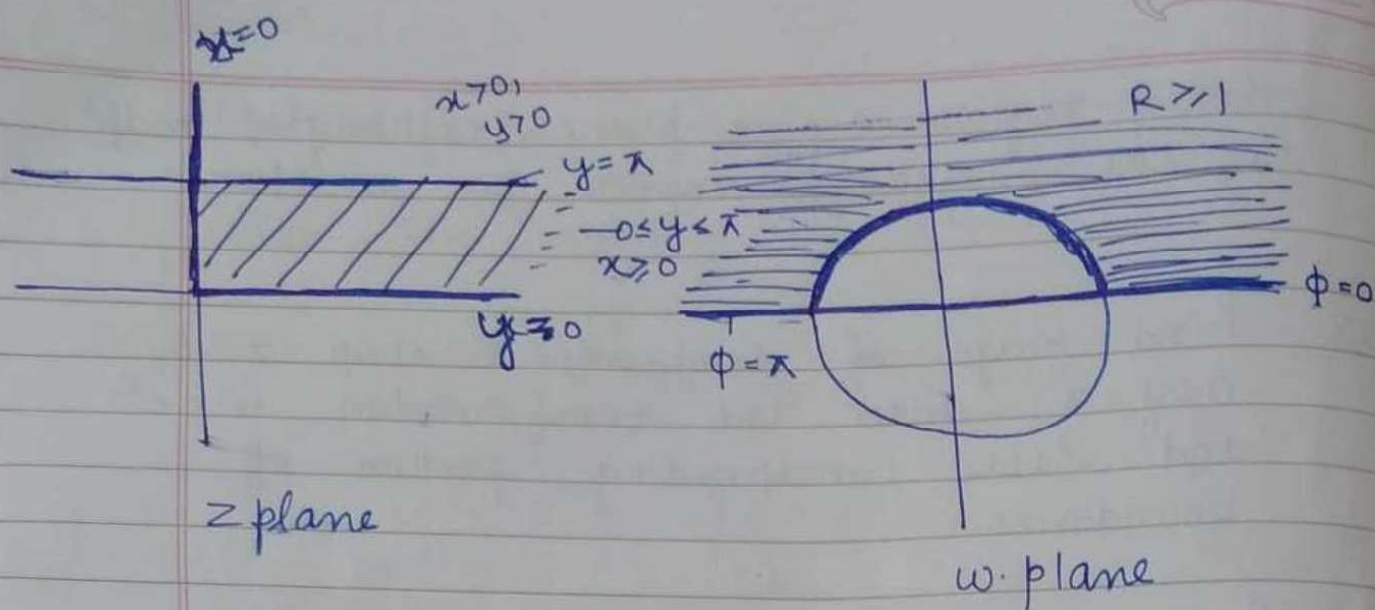 x=0
x>0,
y>0
y=π
0≤y≤π
x≥0
y=0
z plane
R≥1
φ=0
φ=π
w. plane